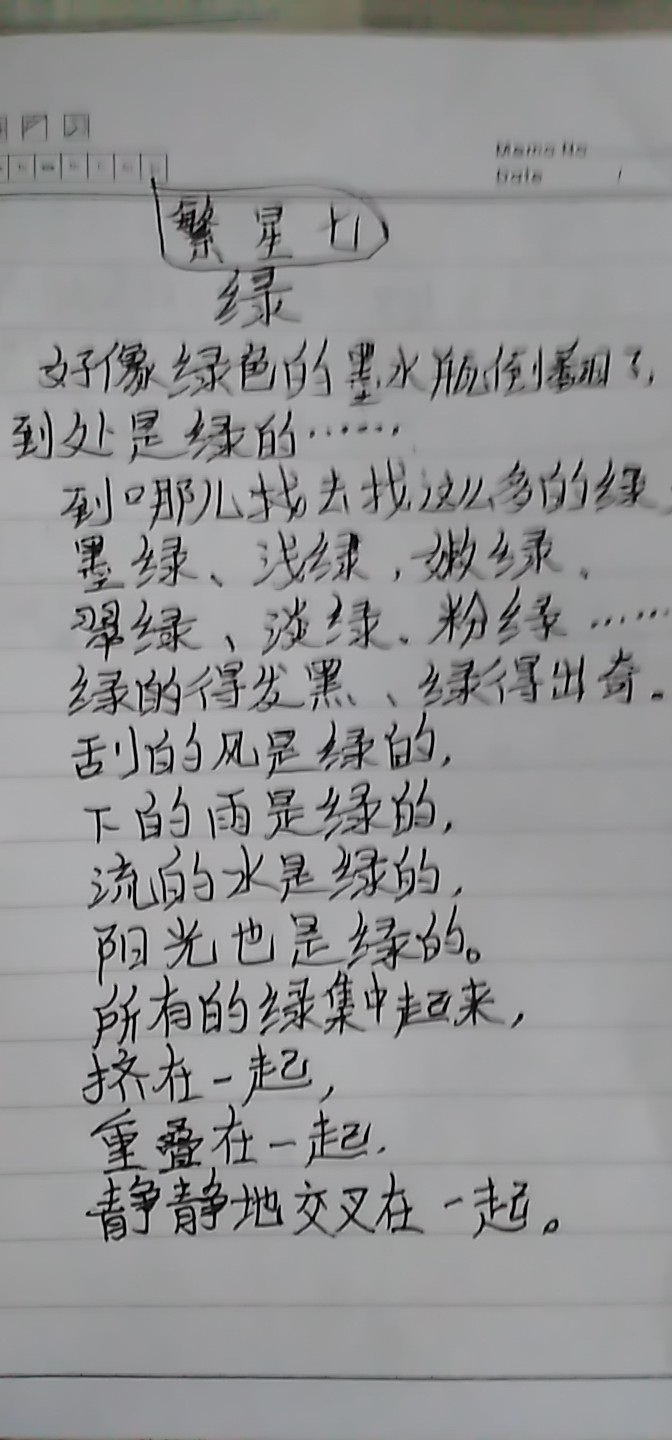 Memo No
Date /
繁星七
绿
好像绿色的墨水瓶倒翻了,
到处是绿的……
到哪儿找去找这么多的绿
墨绿、浅绿,嫩绿、
翠绿、淡绿、粉绿……
绿的得发黑、绿得出奇。
刮的风是绿的,
下的雨是绿的,
流的水是绿的,
阳光也是绿的。
所有的绿集中起来,
挤在一起,
重叠在一起.
静静地交叉在一起。